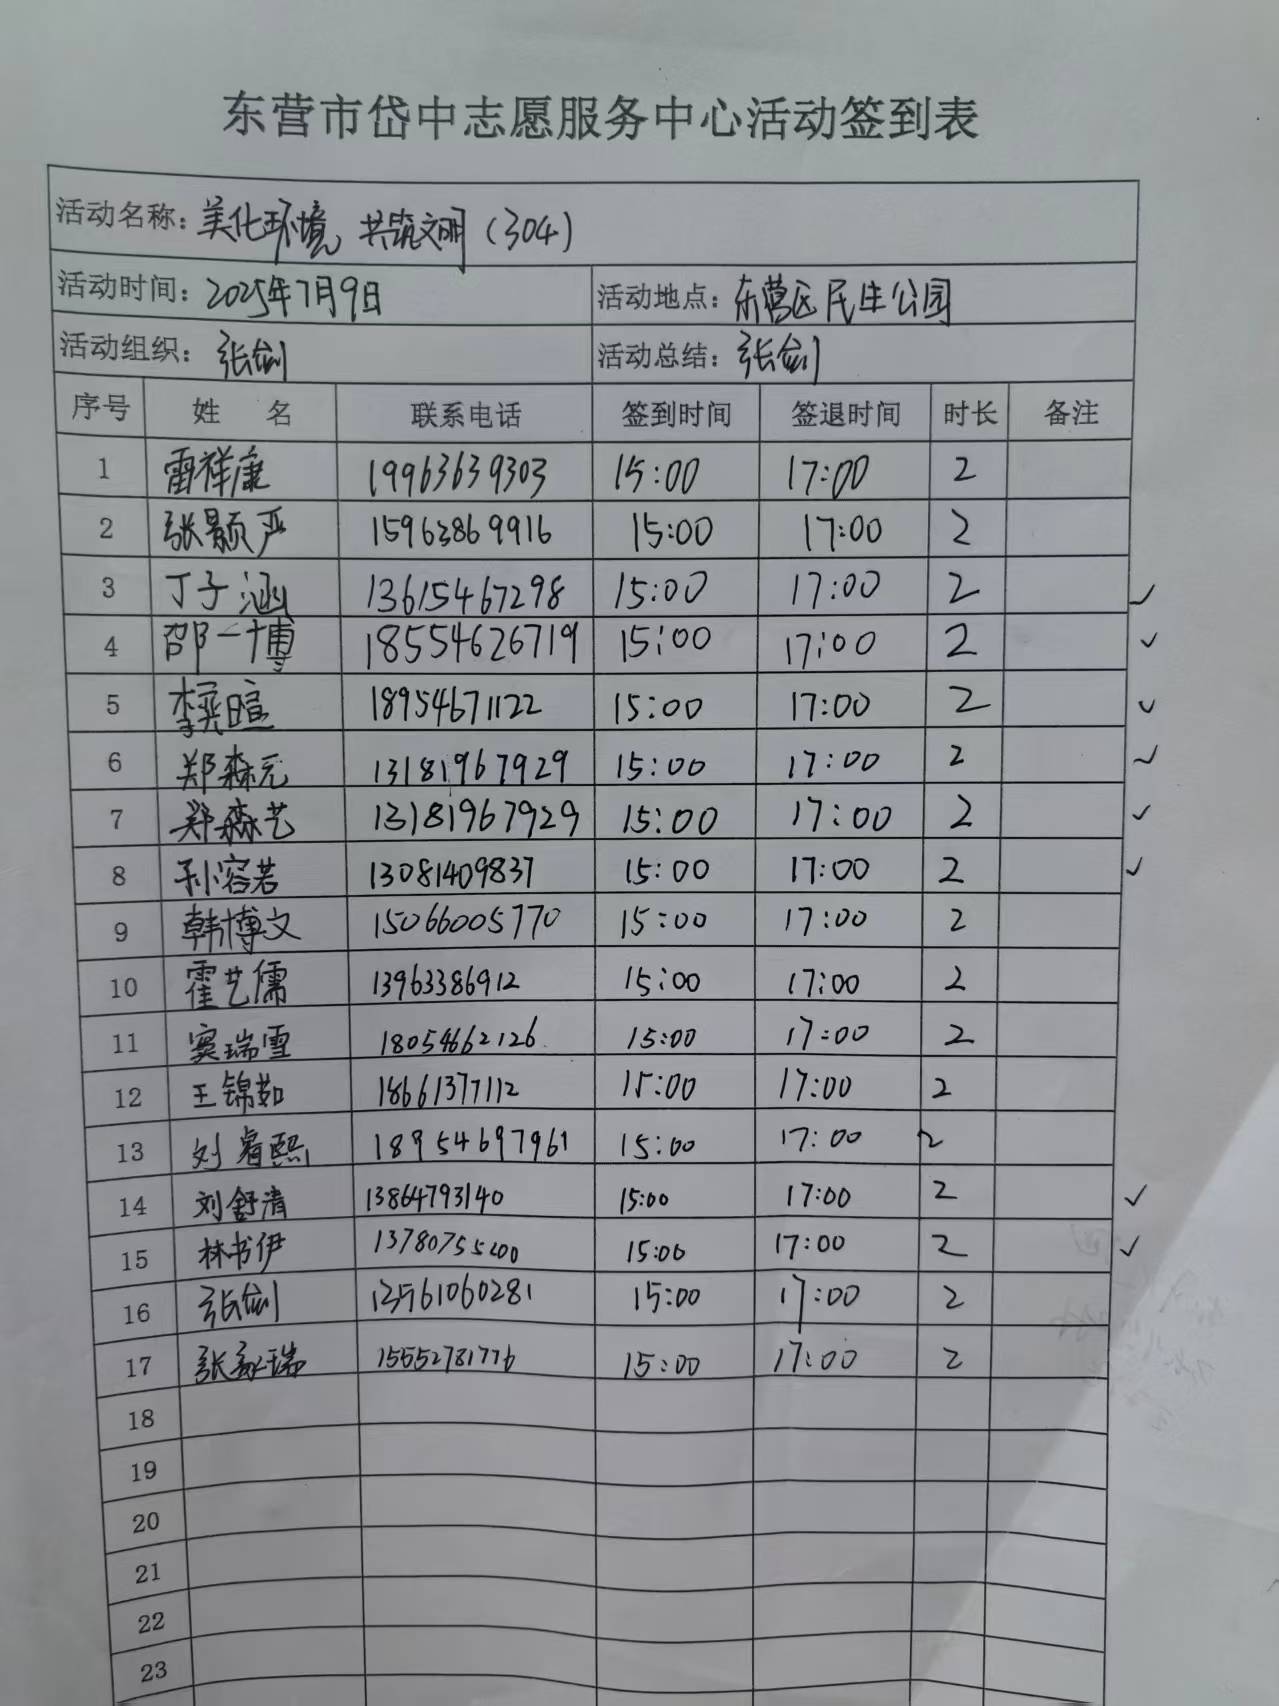 东营市岱中志愿服务中心活动签到表
活动名称：美化环境 共筑文明（304）
活动时间：2025年7月9日 活动地点：东营区民生公园
活动组织：张剑 活动总结：张剑
序号 姓 名 联系电话 签到时间 签退时间 时长 备注
1 雷祥康 19963639303 15:00 17:00 2
2 张颢严 15963869916 15:00 17:00 2
3 丁子涵 13615467298 15:00 17:00 2 ✓
4 邵一博 18554626719 15:00 17:00 2 ✓
5 李奕暄 18954671122 15:00 17:00 2 ✓
6 郑森元 13181967929 15:00 17:00 2 ✓
7 郑森艺 13181967929 15:00 17:00 2 ✓
8 孙容若 13081409837 15:00 17:00 2 ✓
9 韩博文 15066005770 15:00 17:00 2
10 霍艺儒 13963386912 15:00 17:00 2
11 窦瑞雪 18054662126 15:00 17:00 2
12 王锦茹 18661377112 15:00 17:00 2
13 刘睿熙 18954697961 15:00 17:00 2
14 刘舒清 13864793140 15:00 17:00 2 ✓
15 林书伊 15:00 17:00 2 ✓
16 张剑 13561060281 15:00 17:00 2
17 15552781776 15:00 17:00 2
18
19
20
21
22
23